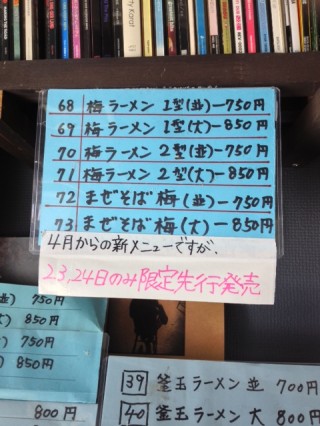 68 梅ラーメン 1型(並)ー750円
69 梅ラーメン 1型(大)ー850円
70 梅ラーメン 2型(並)ー750円
71 梅ラーメン 2型(大)ー850円
72 まぜそば梅(並)ー750円
73 まぜそば梅(大)ー850円
4月からの新メニューですが、
23,24日のみ限定先行発売
並) 750円
大) 850円
750円
850円
800円
39 釜玉ラーメン 並 700円
40 釜玉ラーメン 大 800円